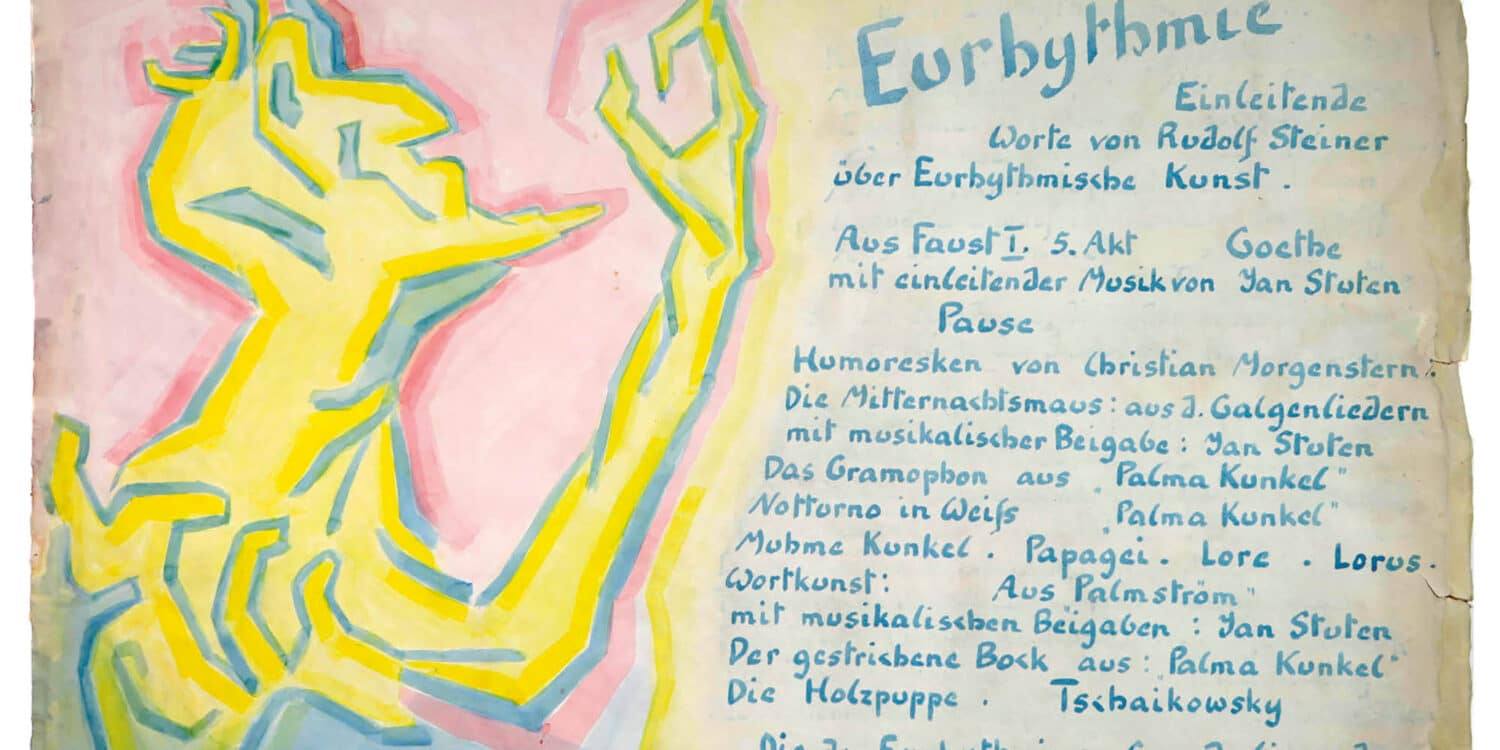 Eurhythmie
Einleitende
Worte von Rudolf Steiner
über Eurhythmische Kunst.
Aus Faust I. 5. Akt Goethe
mit einleitender Musik von Jan Stuten
Pause
Humoresken von Christian Morgenstern:
Die Mitternachtsmaus: aus d. Galgenliedern
mit musikalischer Beigabe: Jan Stuten
Das Gramophon aus „Palma Kunkel"
Notturno in Weiss „Palma Kunkel"
Muhme Kunkel. Papagei. Lore. Lorus.
Wortkunst: Aus Palmström"
mit musikalischen Beigaben: Jan Stuten
Der gestrichene Bock aus: „Palma Kunkel"
Die Holzpuppe. Tschaikowsky